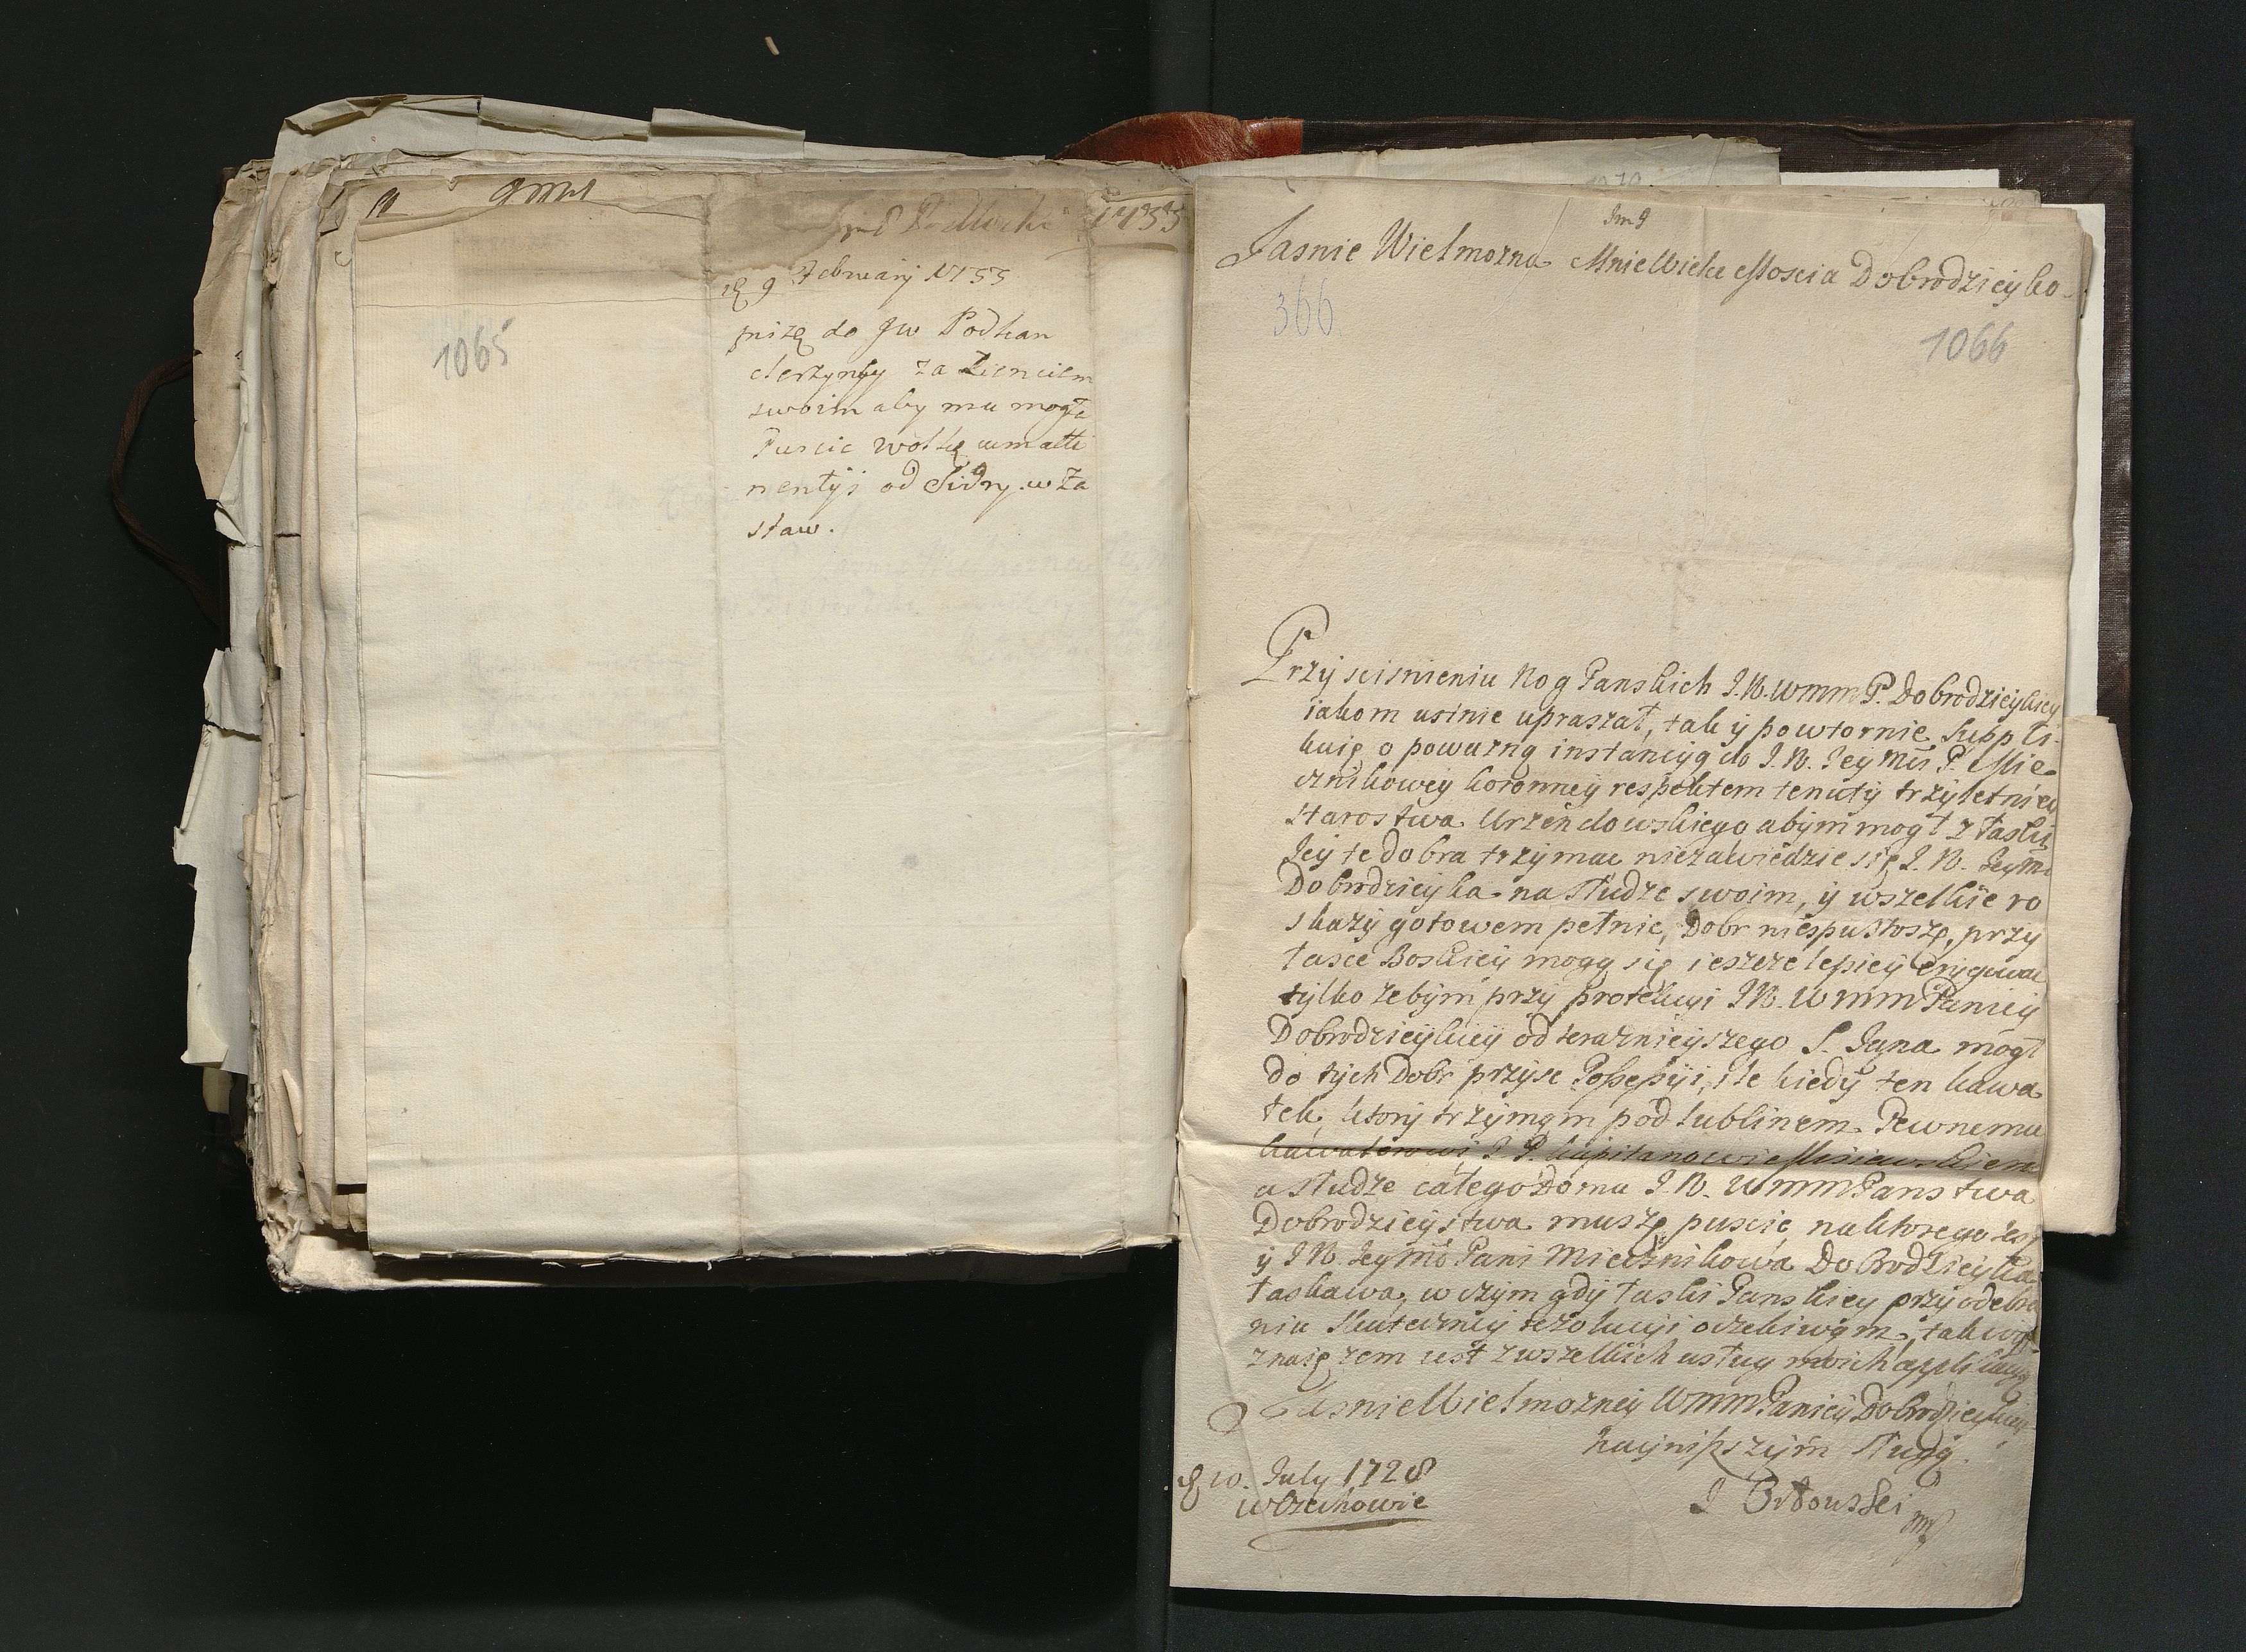 1733
1065
9 February 1733
piszę do Jw Podkan
clerzyny za Zienciem
swoim aby mu mogła
Puscic wolkę
od Sidry w Za
staw.
Jasnie Wielmozna Mnie Wielce Moscia Dobrodzieyko
366
1066
Przy scisnieniu Nog Panskich J.W. WMM P. Dobrodzieyki
iakom ustnie upraszał, tak y powtornie Suppli-
kuię o powazną instancyą do J.W. Jey Mci P. Mie-
cznikowey koronney respektem tenuty trzyletniey
Starostwa Urzendowskiego abym mogł z łaski
Jey te dobra trzymac niezawiedzie się J.W. Jeym
Dobrodzieyka na słudze swoim, y wszelkie ro
skazy gotowem pełnic, Dobr niespustoszę, przy
łasce Boskiey mogą się ieszcze lepiey erygowac
tylko zebym przy protekcyi JW. WMM Paniey
Dobrodzieyki od teraznieyszego S. Jana mogł
do tych Dobr przysc Possessyi, ile kiedy ten kawa
łek, ktory trzymam pod lublinem Pewnemu
kawalerowi J.P. kapitanowi
a słudze całego Domu J.W. WMM Panstwa
Dobrodzieystwa muszę puscic na ktorego iest
y JW. Jey Mć Pani Miecznikowa Dobrodzieyka
łaskawa, w czym gdy łaski Panskiey przy odebra
niu skuteczney rezolucyi oczekiwam, tak
znaię zem iest z wszelkich usług moich
Jasnie Wielmozney WMM Paniey Dobrodzieyki
naynizszym sługą.
10. July 1728
w Orzechowie